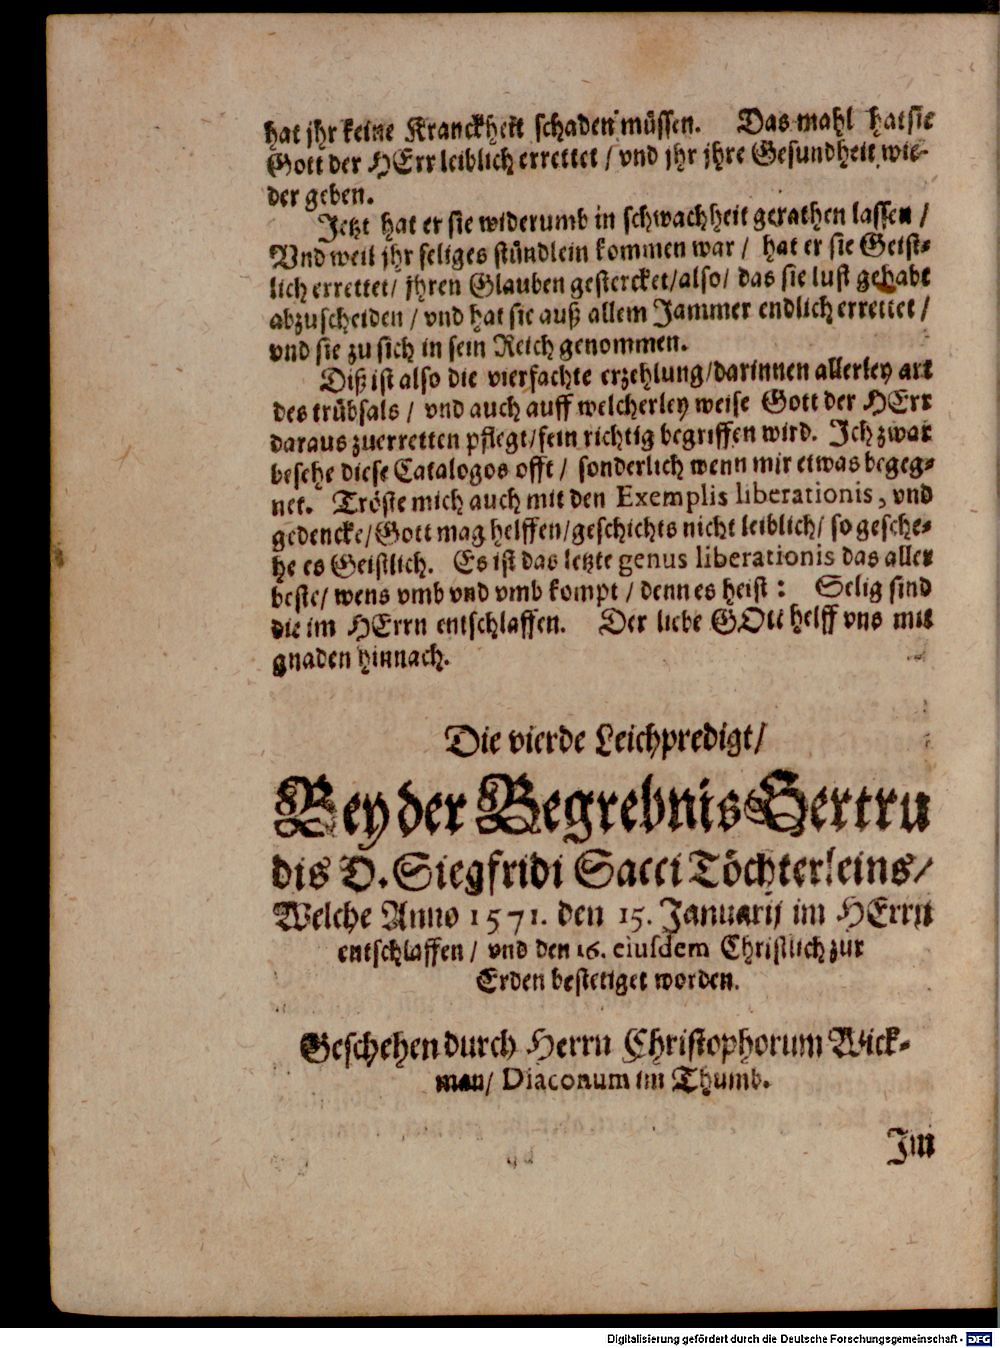 hat jhr keine Kranckheit schaden müssen. Das mahl hat sie
Gott der HErr leiblich errettet / vnd jhr jhre Gesundheit wie-
der geben.
Jetzt hat er sie widerumb in schwachheit gerathen lassen /
Vnd weil jhr seliges stündlein kommen war / hat er sie Geist-
lich errettet / jhren Glauben gestercket / also / das sie lust gehabt
abzuscheiden / vnd hat sie auß allem Jammer endlich errettet /
vnd sie zu sich in sein Reich genommen.
Diß ist also die vierfachte erzehlung / darinnen allerley art
des trübsals / vnd auch auff welcherley weise Gott der HErr
daraus zuerretten pflegt / fein richtig begriffen wird. Ich zwar
besehe diese Catalogos offt / sonderlich wenn mir etwas begeg-
net. Tröste mich auch mit den Exemplis liberationis, vnd
gedencke / Gott mag helffen / geschichts nicht leiblich / so gesche-
he es Geistlich. Es ist das letzte genus liberationis das aller
beste / wens vmb vnd vmb kompt / denn es heist: Selig sind
die im HErrn entschlaffen. Der liebe GOtt helff vns mit
gnaden hinnach.
Die vierde Leichpredigt /
Bey der Begrebnis Gertru
dis D. Siegfridi Sacci Töchterleins /
Welche Anno 1571. den 15. Januarij im HErrn
entschlaffen / vnd den 16. eiusdem Christlich zur
Erden bestetiget worden.
Geschehen durch Herrn Christophorum Wick-
man / Diaconum im Thumb.
Im
Digitalisierung gefördert durch die Deutsche Forschungsgemeinschaft - DFG